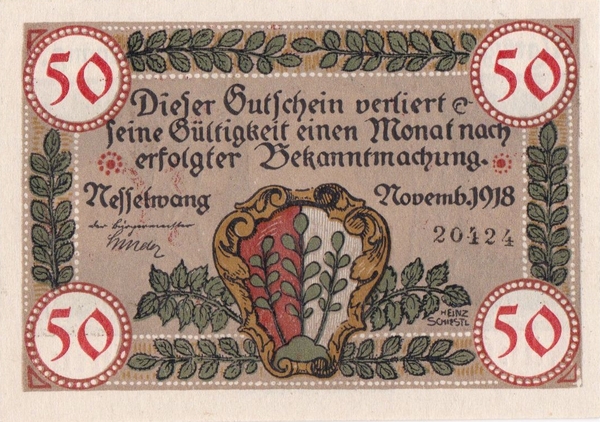 50
50
Dieser Gutschein verliert
seine Gültigkeit einen Monat nach
erfolgter Bekanntmachung.
Nesselwang
Novemb. 1918
der Bürgermeister
20424
HEINZ
SCHIESTL
50
50